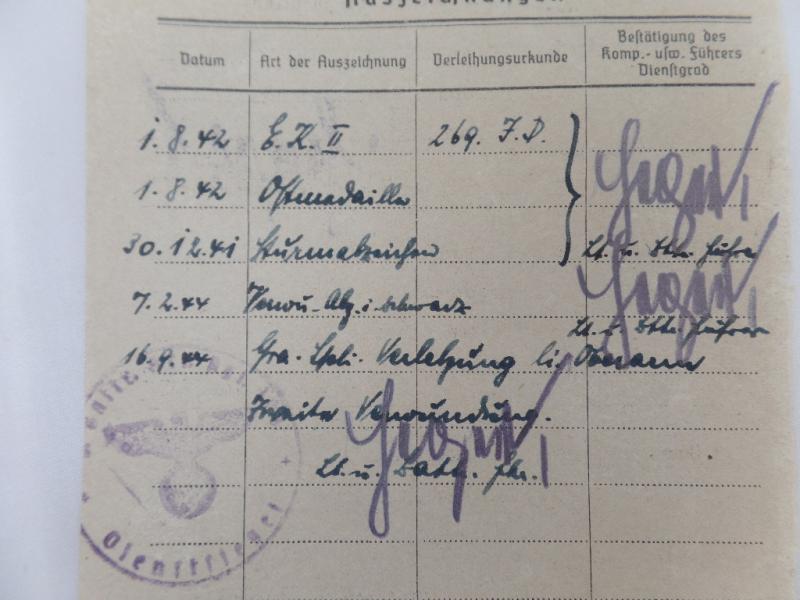 Auszeichnungen
Datum Art der Auszeichnung Verleihungsurkunde Bestätigung des Komp.- usw. Führers Dienstgrad
1.8.42 E.K. II 269. I.D.
1.8.42 Ostmedaille
30.12.41 Sturmabzeichen Lt. u. Bttr. Führer
7.2.44 Verwu-Abz. i. schwarz
Lt. u. Bttr. Führer
16.9.44 Gra. Spli. Verletzung li. Oberarm
Zweite Verwundung.
Lt. u. Battr. fhr.
Dienstsiegel